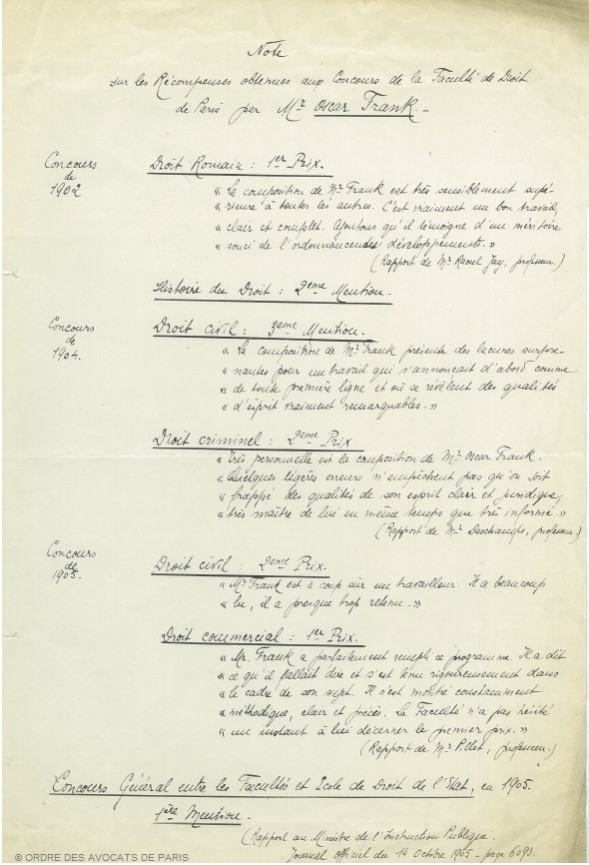 Note
sur les Récompenses obtenues aux Concours de la Faculté de Droit
de Paris par Mr Oscar Frank.-
Concours
de
1902
Droit Romain : 1er Prix.
« La composition de Mr Frank est très sensiblement supé-
« rieure à toutes les autres. C'est vraiment un bon travail,
« clair et complet. Ajoutons qu'il témoigne d'un méritoire
« souci de l'ordonnance des développements. »
(Rapport de Mr Raoul Jay, professeur)
Histoire du Droit : 2eme Mention.
Concours
de
1904.
Droit civil : 3eme Mention.
« La composition de Mr Frank présente des lacunes surpre-
« nantes pour un travail qui s'annonçait d'abord comme
« de toute première ligne et où se révèlent des qualités
« d'esprit vraiment remarquables. »
Droit criminel : 2eme Prix
« Très personnelle est la composition de Mr Oscar Frank.
« Quelques légères erreurs n'empêchent pas qu'on soit
« frappé des qualités de son esprit clair et juridique,
« très maître de lui en même temps que très informé. »
(Rapport de Mr Deschamps, professeur)
Concours
de
1905.
Droit civil : 2eme Prix.
« Mr Frank est à coup sûr un travailleur. Il a beaucoup
« lu, il a presque trop retenu. »
Droit commercial : 1er Prix.
« Mr. Frank a parfaitement rempli ce programme. Il a dit
« ce qu'il fallait dire et s'est tenu rigoureusement dans
« le cadre de son sujet. Il s'est montré constamment
« méthodique, clair et précis. La Faculté n'a pas hésité
« un instant à lui décerner le premier prix. »
(Rapport de Mr Pillet, professeur.)
Concours Général entre les Facultés et Ecole de Droit de l'Etat, en 1905.
1ère Mention.
(Rapport au Ministre de l'Instruction Publique.
Journal officiel du 14 Octobre 1905 - page 6093.
© ORDRE DES AVOCATS DE PARIS